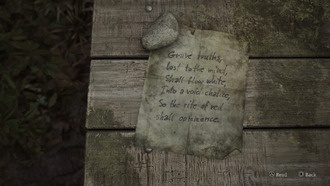 Grave truths,
lost to the mind,
Shall flow white
Into a void chalice,
So the rite of red
shall commence.
Read
Back